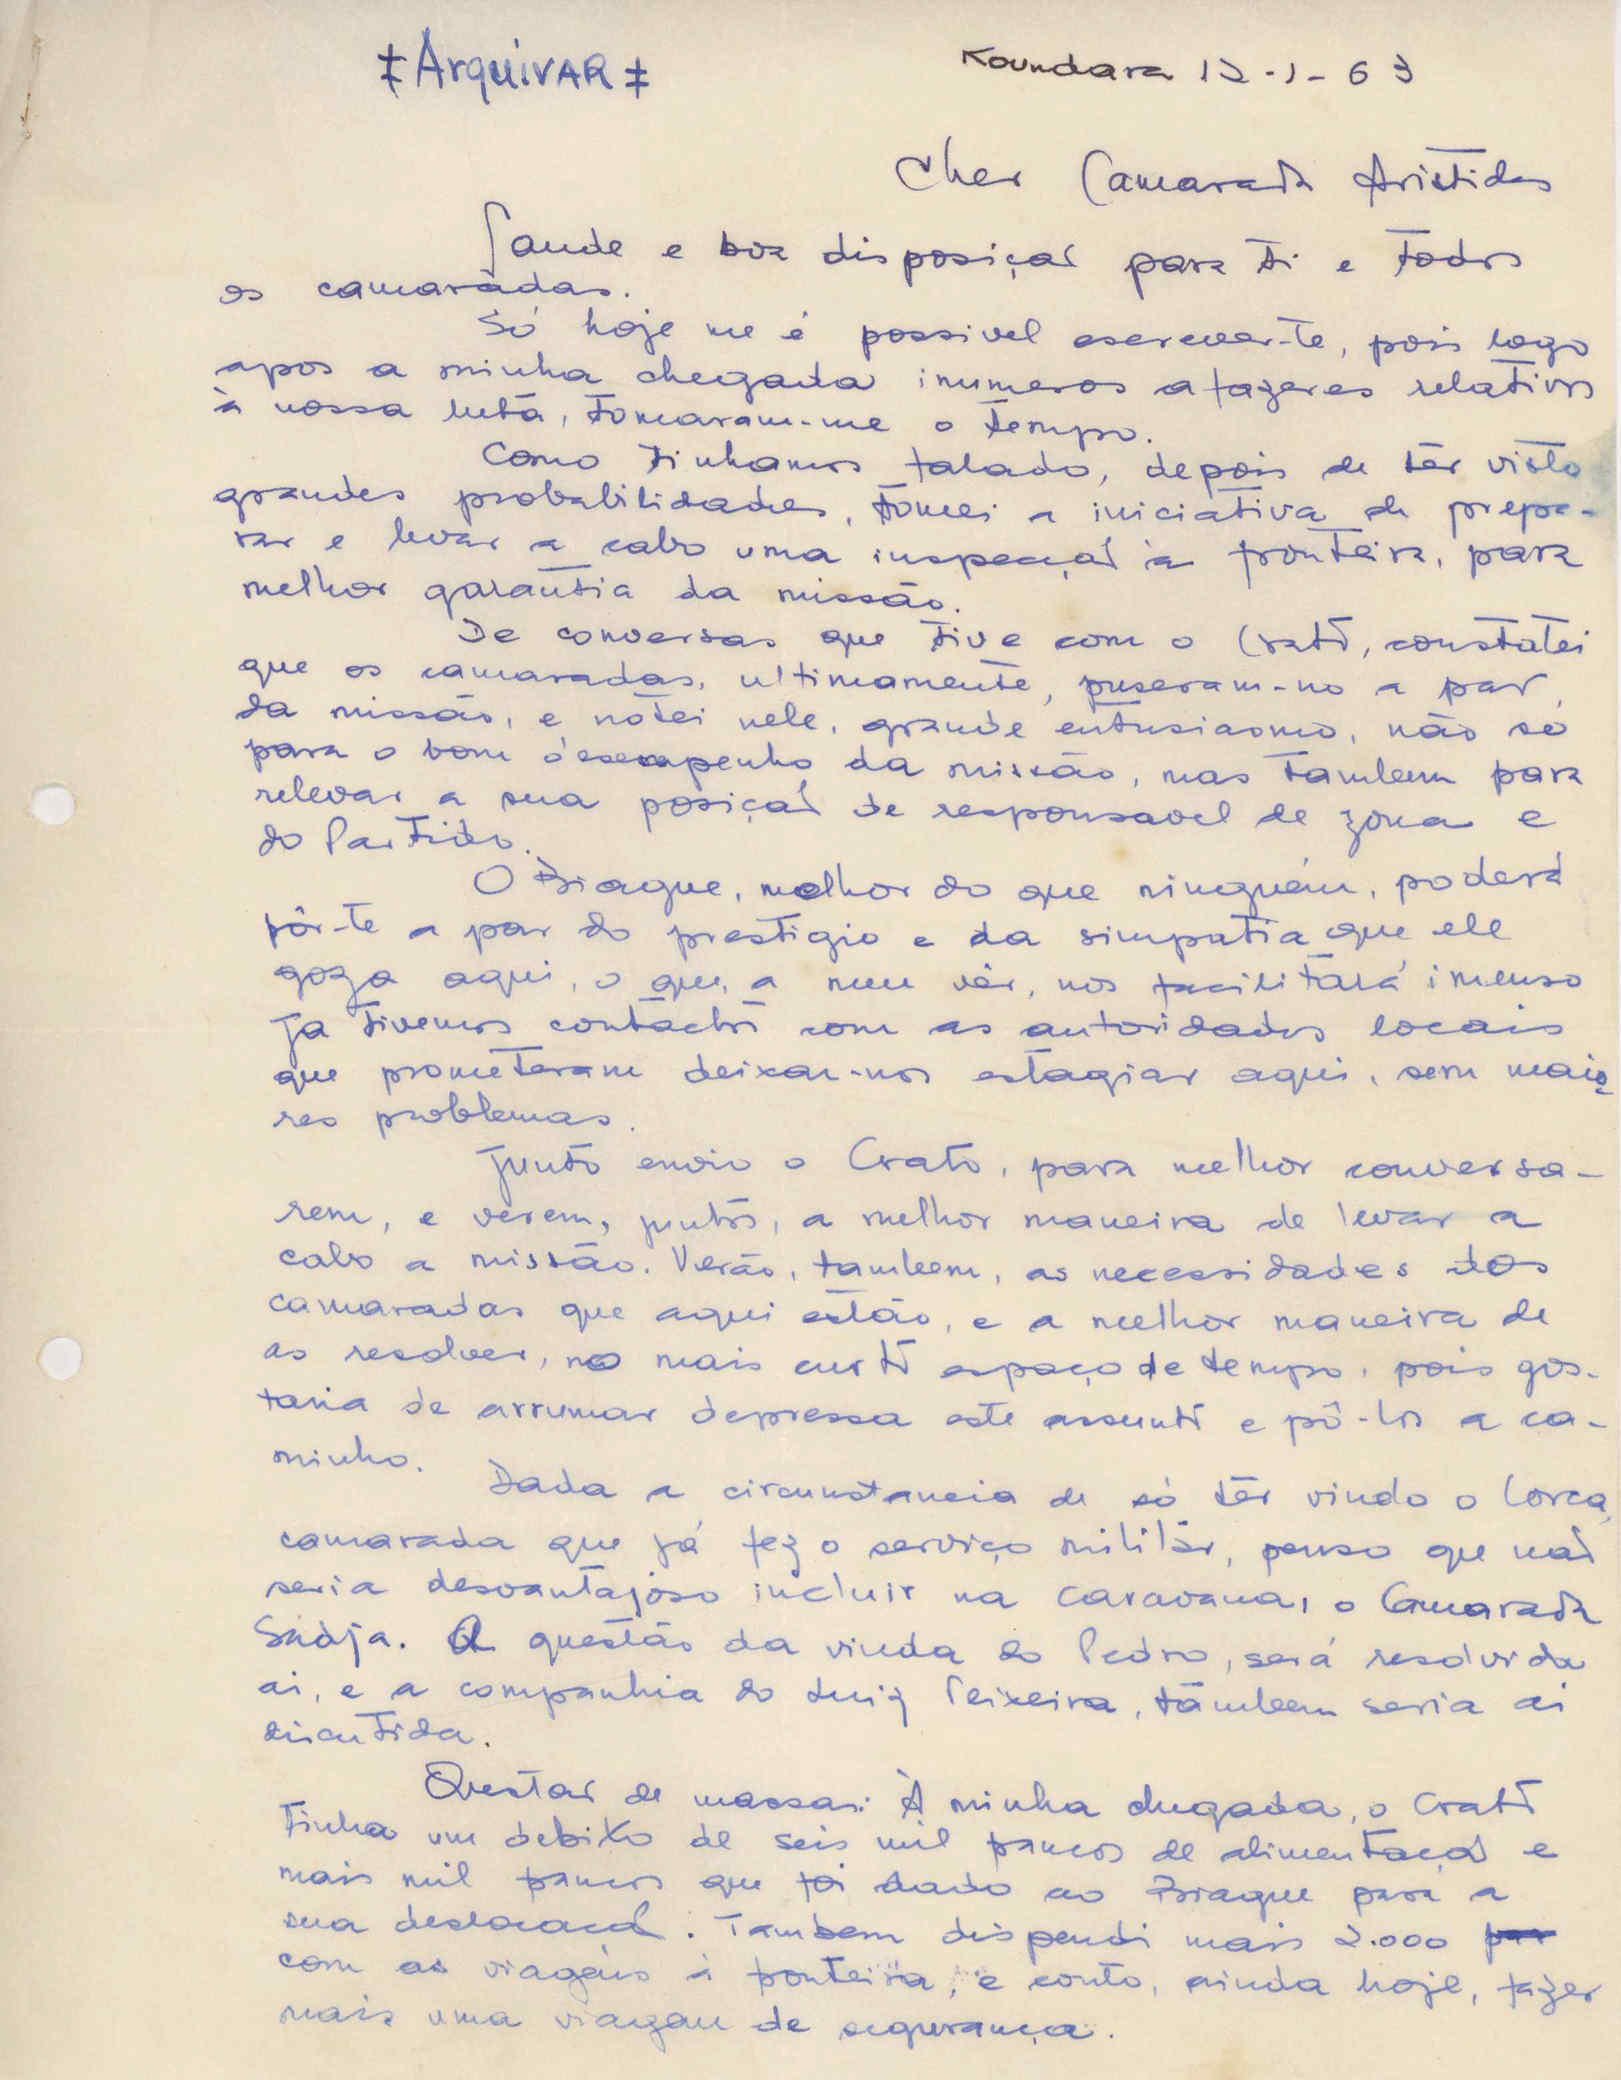 ‡ArquivAR‡
Koundara 12-1-63
Cher Camarada Aristides
Saude e boa disposição para ti e todos
os camaradas.
Só hoje me é possivel escrever-te, pois logo
apos a minha chegada inumeros afazeres relativos
à nossa luta, tomaram-me o tempo.
Como tinhamos falado, depois de têr visto
grandes probabilidades, tomei a iniciativa de prepa-
rar e levar a cabo uma inspecção à fronteira, para
melhor garantia da missão.
De conversas que tive com o Crato, constatei
que os camaradas, ultimamente, puseram-no a par
da missão, e notei nele, grande entusiasmo, não só
para o bom desempenho da missão, mas tambem para
relevar a sua posição de responsavel de zona e
do Partido.
O Biague, melhor do que ninguém, poderá
pôr-te a par do prestigio e da simpatia que ele
goza aqui, o que, a meu vêr, nos facilitará imenso
Ja tivemos contactos com as autoridades locais
que prometeram deixar-nos estagiar aqui, sem maio-
res problemas.
Junto envio o Crato, para melhor conversa-
rem, e verem, juntos, a melhor maneira de levar a
cabo a missão. Verão, tambem, as necessidades dos
camaradas que aqui estão, e a melhor maneira de
as resolver, no mais curto espaço de tempo, pois gos-
taria de arrumar depressa este assunto e pô-los a ca-
minho.
Dada a circunstancia de só têr vindo o Lorca,
camarada que já fez o serviço militar, penso que não
seria desvantajoso incluir na caravana, o Camarada
Sadja. A questão da vinda do Pedro, será resolvida
ai, e a companhia do Luiz Teixeira, tâmbem seria ai
discutida.
Questão de massa: À minha chegada, o Crato
tinha um debito de seis mil francos de alimentação e
mais mil francos que foi dado ao Biague para a
sua deslocação. Tambem dispendi mais 2.000
com as viagens à fronteira, e conto, ainda hoje, fazer
mais uma viagem de segurança.